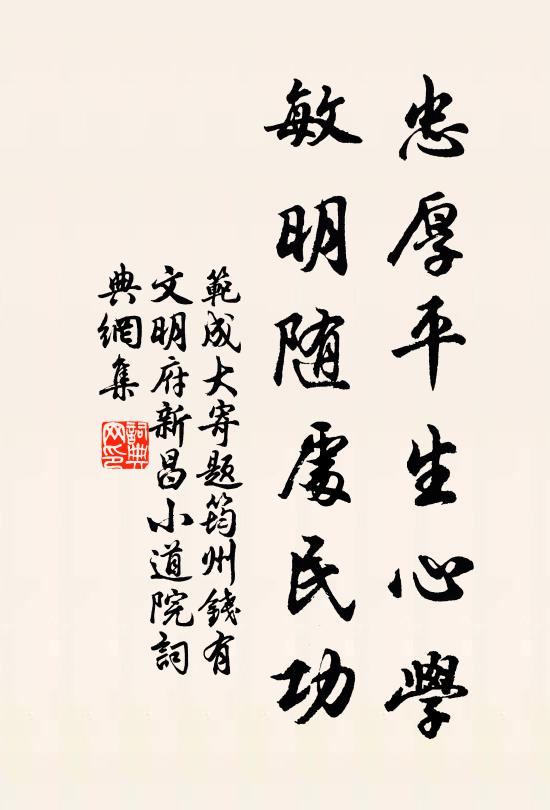 忠厚平生心學
敏明随處民功
範成大寄題筠州錢有
文明府新昌小道院詞
典網集
詞典
网印